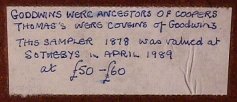 GODDWINS WERE ANCESTORS OF COOPERS
THOMAS'S WERE COUSINS of Goodwins
THIS SAMPLER 1878 was valued at
SOTHEBYS in APRIL 1989
at £50 - £60